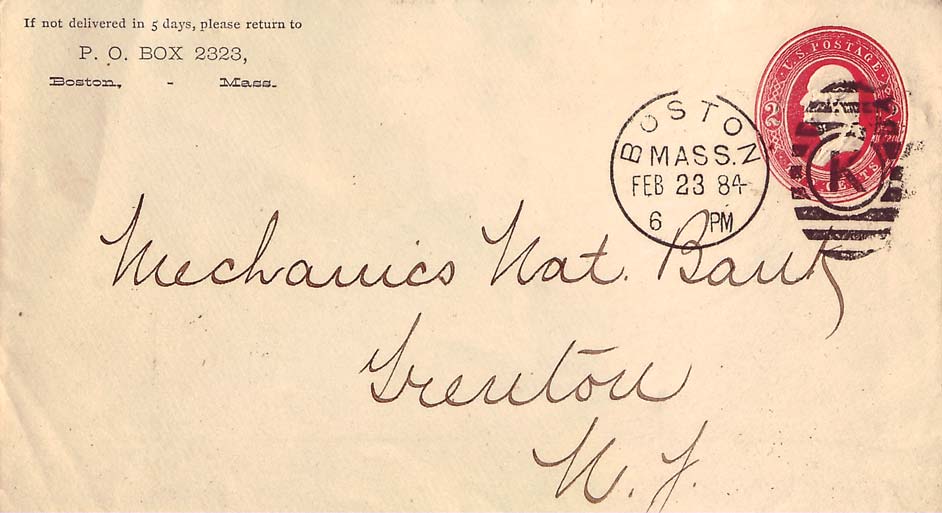 If not delivered in 5 days, please return to
P. O. BOX 2323,
Boston, - Mass.
U.S. POSTAGE
2 2
CENTS
BOSTON
MASS.
FEB 23 84
6 PM
K
Mechanics Nat. Bank
Trenton
N. J.